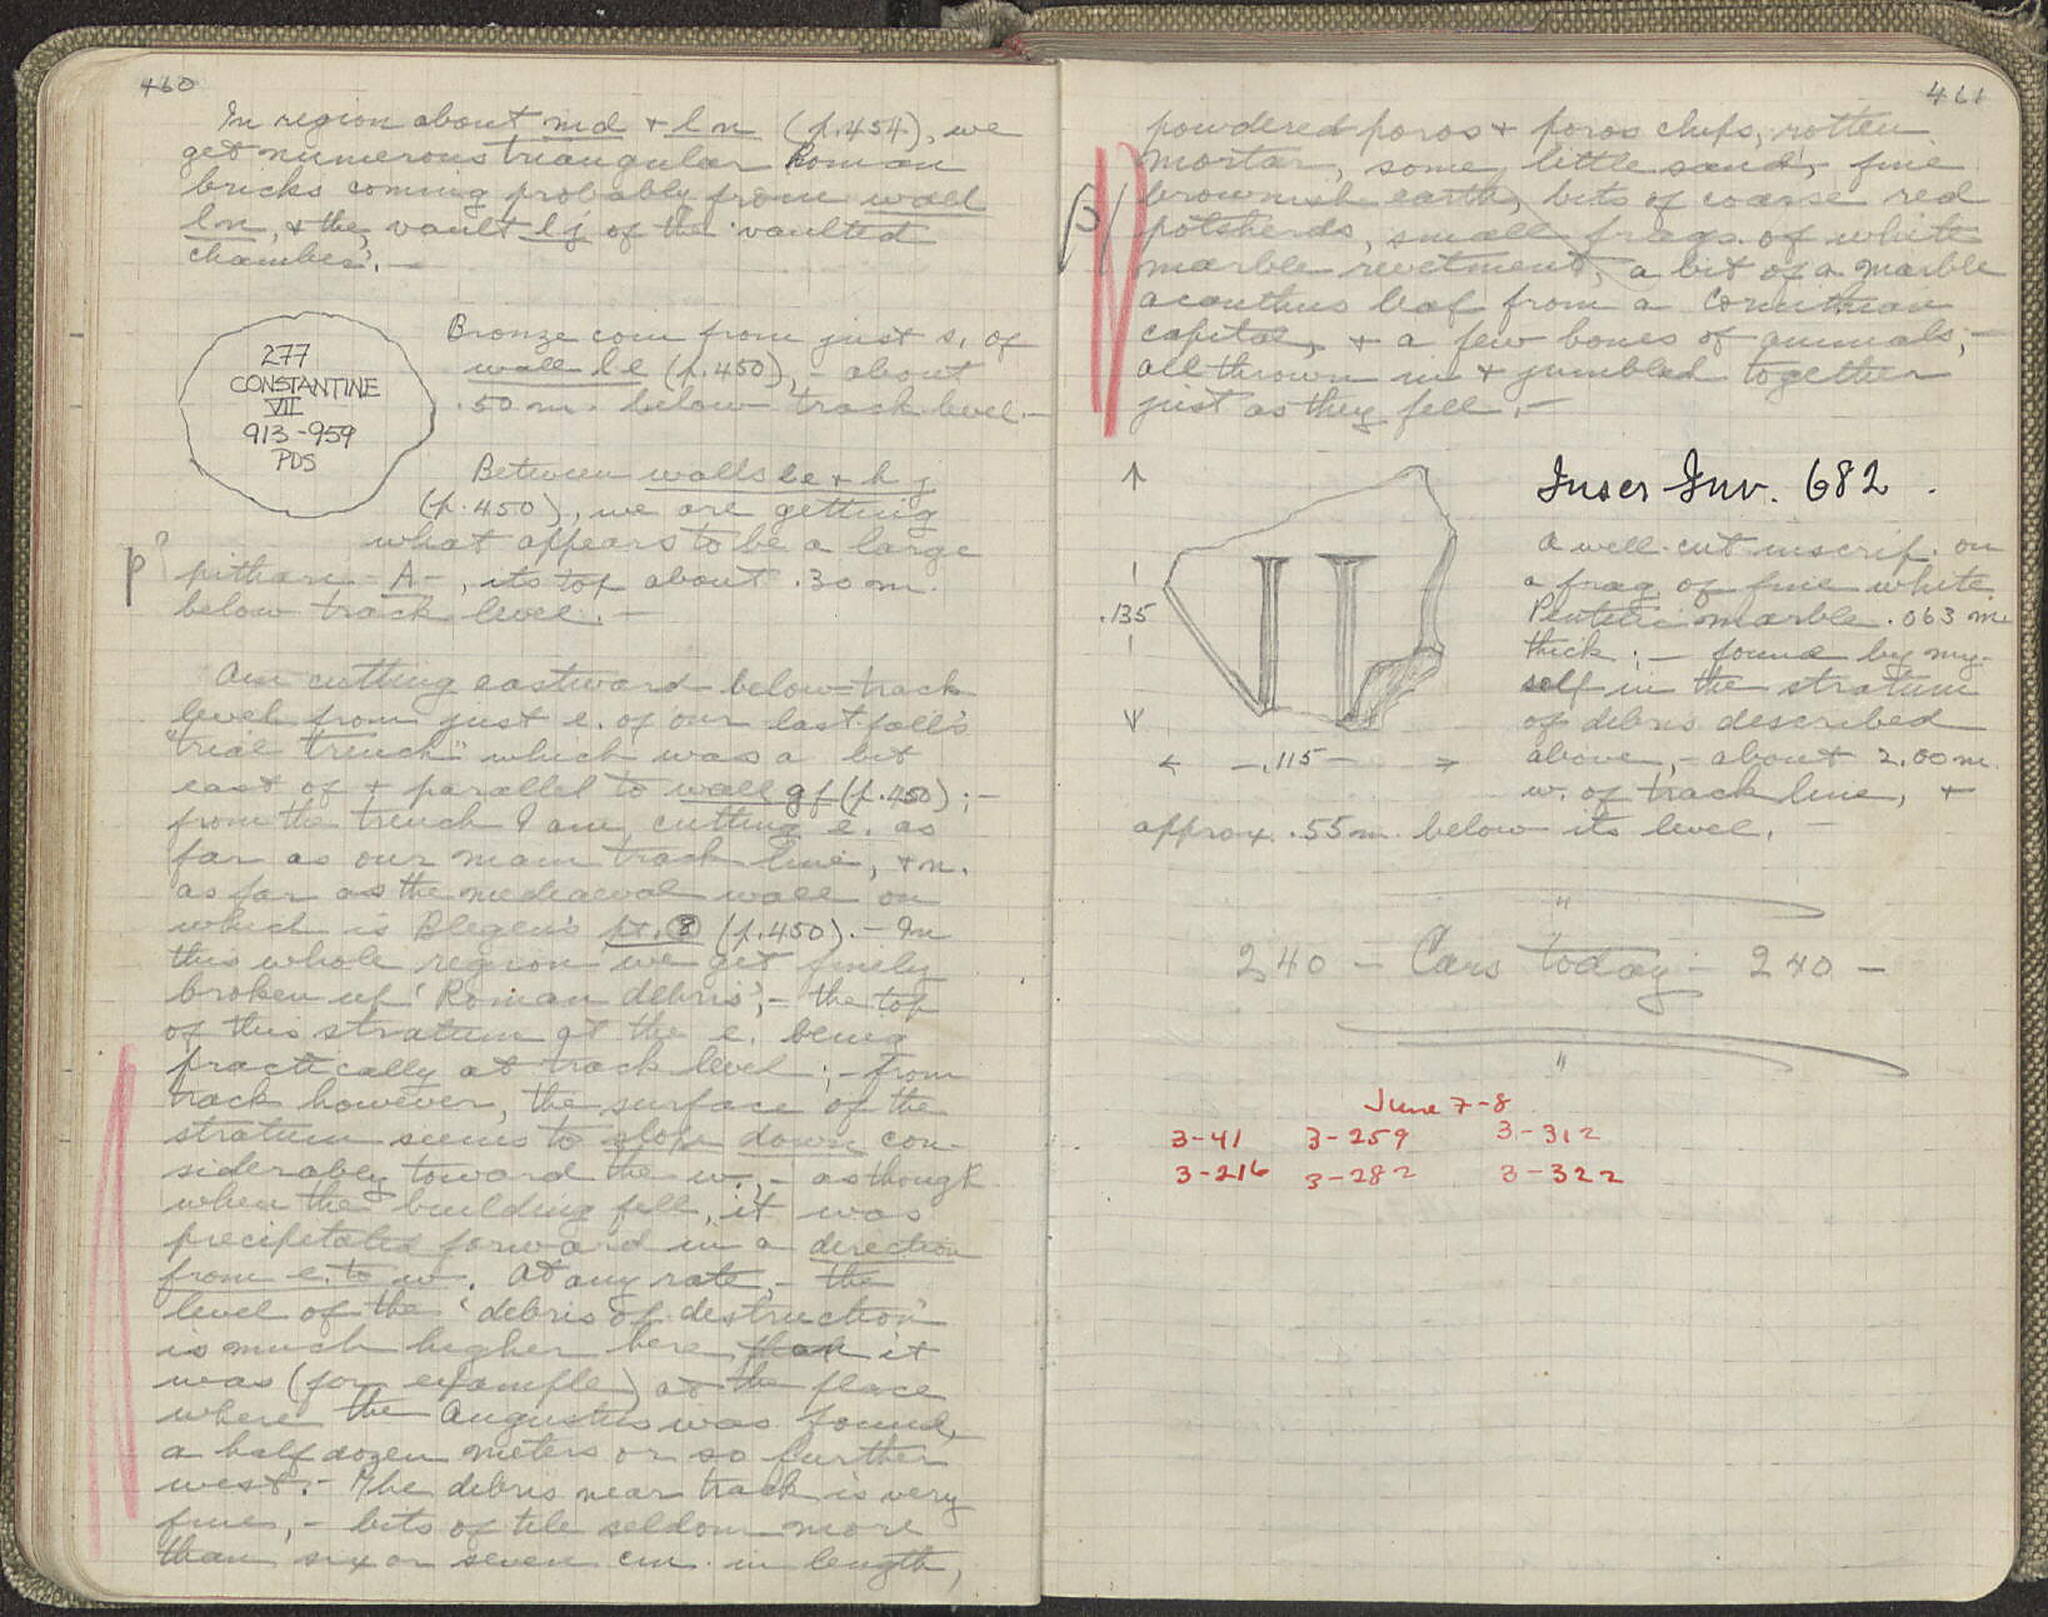 460
In region about md + ln (p.454), we
get numerous triangular Roman
bricks coming probably from wall
ln, + the vault lj of the 'vaulted
chamber'. —
277
CONSTANTINE
VII
913-959
PDS
Bronze coin from just s. of
wall le (p.450), - about
.50 m. below track level. —
Between walls le + hj
(p.450), we are getting
what appears to be a large
pithari - A - , its top about .30 m.
below track level. —
Am cutting eastward below track
level from just e. of our last fall's
"trial trench" which was a bit
east of + parallel to wall gf (p.450) ; —
from the trench I am cutting e. as
far as our main track line, + n.
as far as the mediaeval wall on
which is Blegen's pt. 8 (p.450). — In
this whole region we get finely
broken up 'Roman debris', - the top
of this stratum at the e. being
practically at track level ; - from
track however, the surface of the
stratum seems to slope down con-
siderably toward the w., - as though
when the building fell, it was
precipitated forward in a direction
from e. to w. At any rate, - the
level of the 'debris of destruction'
is much higher here than it
was (for example) at the place
where the Augustus was found,
a half dozen meters or so further
west. - The debris near track is very
fine, - bits of tile seldom more
than six or seven cm. in length,
461
powdered poros + poros chips, rotten
mortar, some little sand, fine
brownish earth, bits of coarse red
potsherds, small frags. of white
marble revetment, a bit of a marble
acanthus leaf from a Corinthian
capital, + a few bones of animals; —
all thrown in + jumbled together
just as they fell. —
Inscr Inv. 682 .
A well-cut inscrip. on
a frag. of fine white
Pentelic marble .063 m.
thick ; — found by my-
self in the stratum
of debris described
above, - about 2.00 m.
w. of track line, +
approx. .55 m. below its level. —
.135
.115
240 — Cars today — 240 —
June 7-8
3-41 3-259 3-312
3-216 3-282 3-322